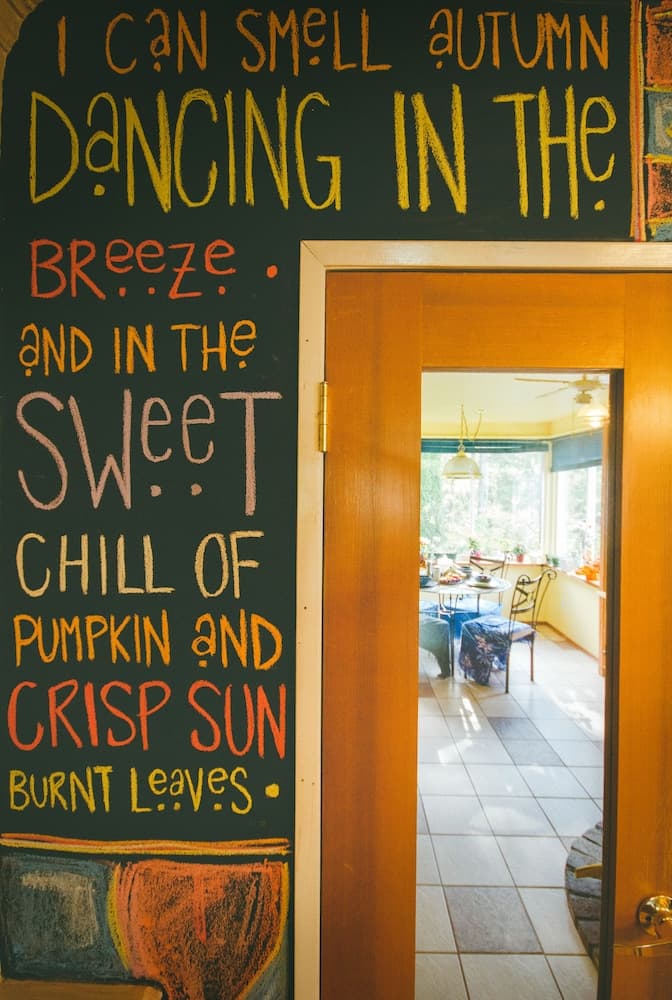 I CaN SMeLL aUTUMN
DaNCING IN THe
BReeZe .
aND IN THe
SWeeT
CHILL OF
PUMPKIN aND
CRISP SUN
BURNT LeaVeS .